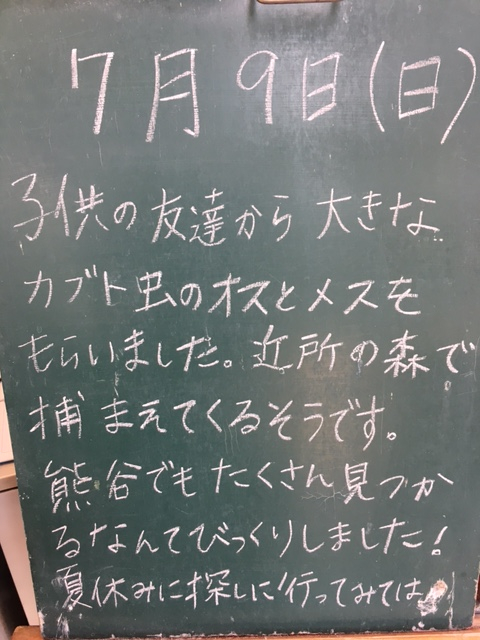 7月9日(日)
子供の友達から大きな
カブト虫のオスとメスを
もらいました。近所の森で
捕まえてくるそうです。
熊谷でもたくさん見つか
るなんてびっくりしました!
夏休みに探しに行ってみては